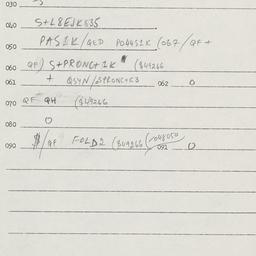 030
040 S+L8EJK835
PASIK/QED PO44SIK/067/QF+
050
060 QF) S+PRONG+IK (849266
061 + QSYN/SPRONG+K3 062 0
070 QF QH (849266
080 0
090 $/QF FOLD2 (849266(/048050
092 0